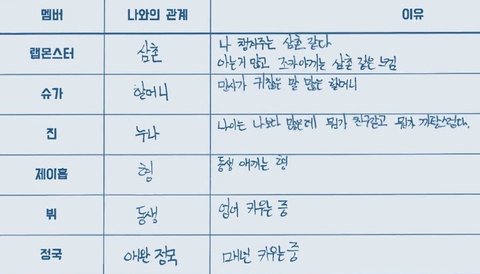 멤버 나와의 관계 이유
랩몬스터 삼촌 나 챙겨주는 삼촌 같다
아는거 많고 조카아끼는 삼촌 같은 느낌
슈가 할머니 만사가 귀찮은 말 많은 할머니
진 누나 나이는 나보다 많은데 뭔가 친구같고 뭔가 까탈스럽다.
제이홉 형 동생 아끼는 형
뷔 동생 업어 키우는 중
정국 애완 정국 매년 키우는 중